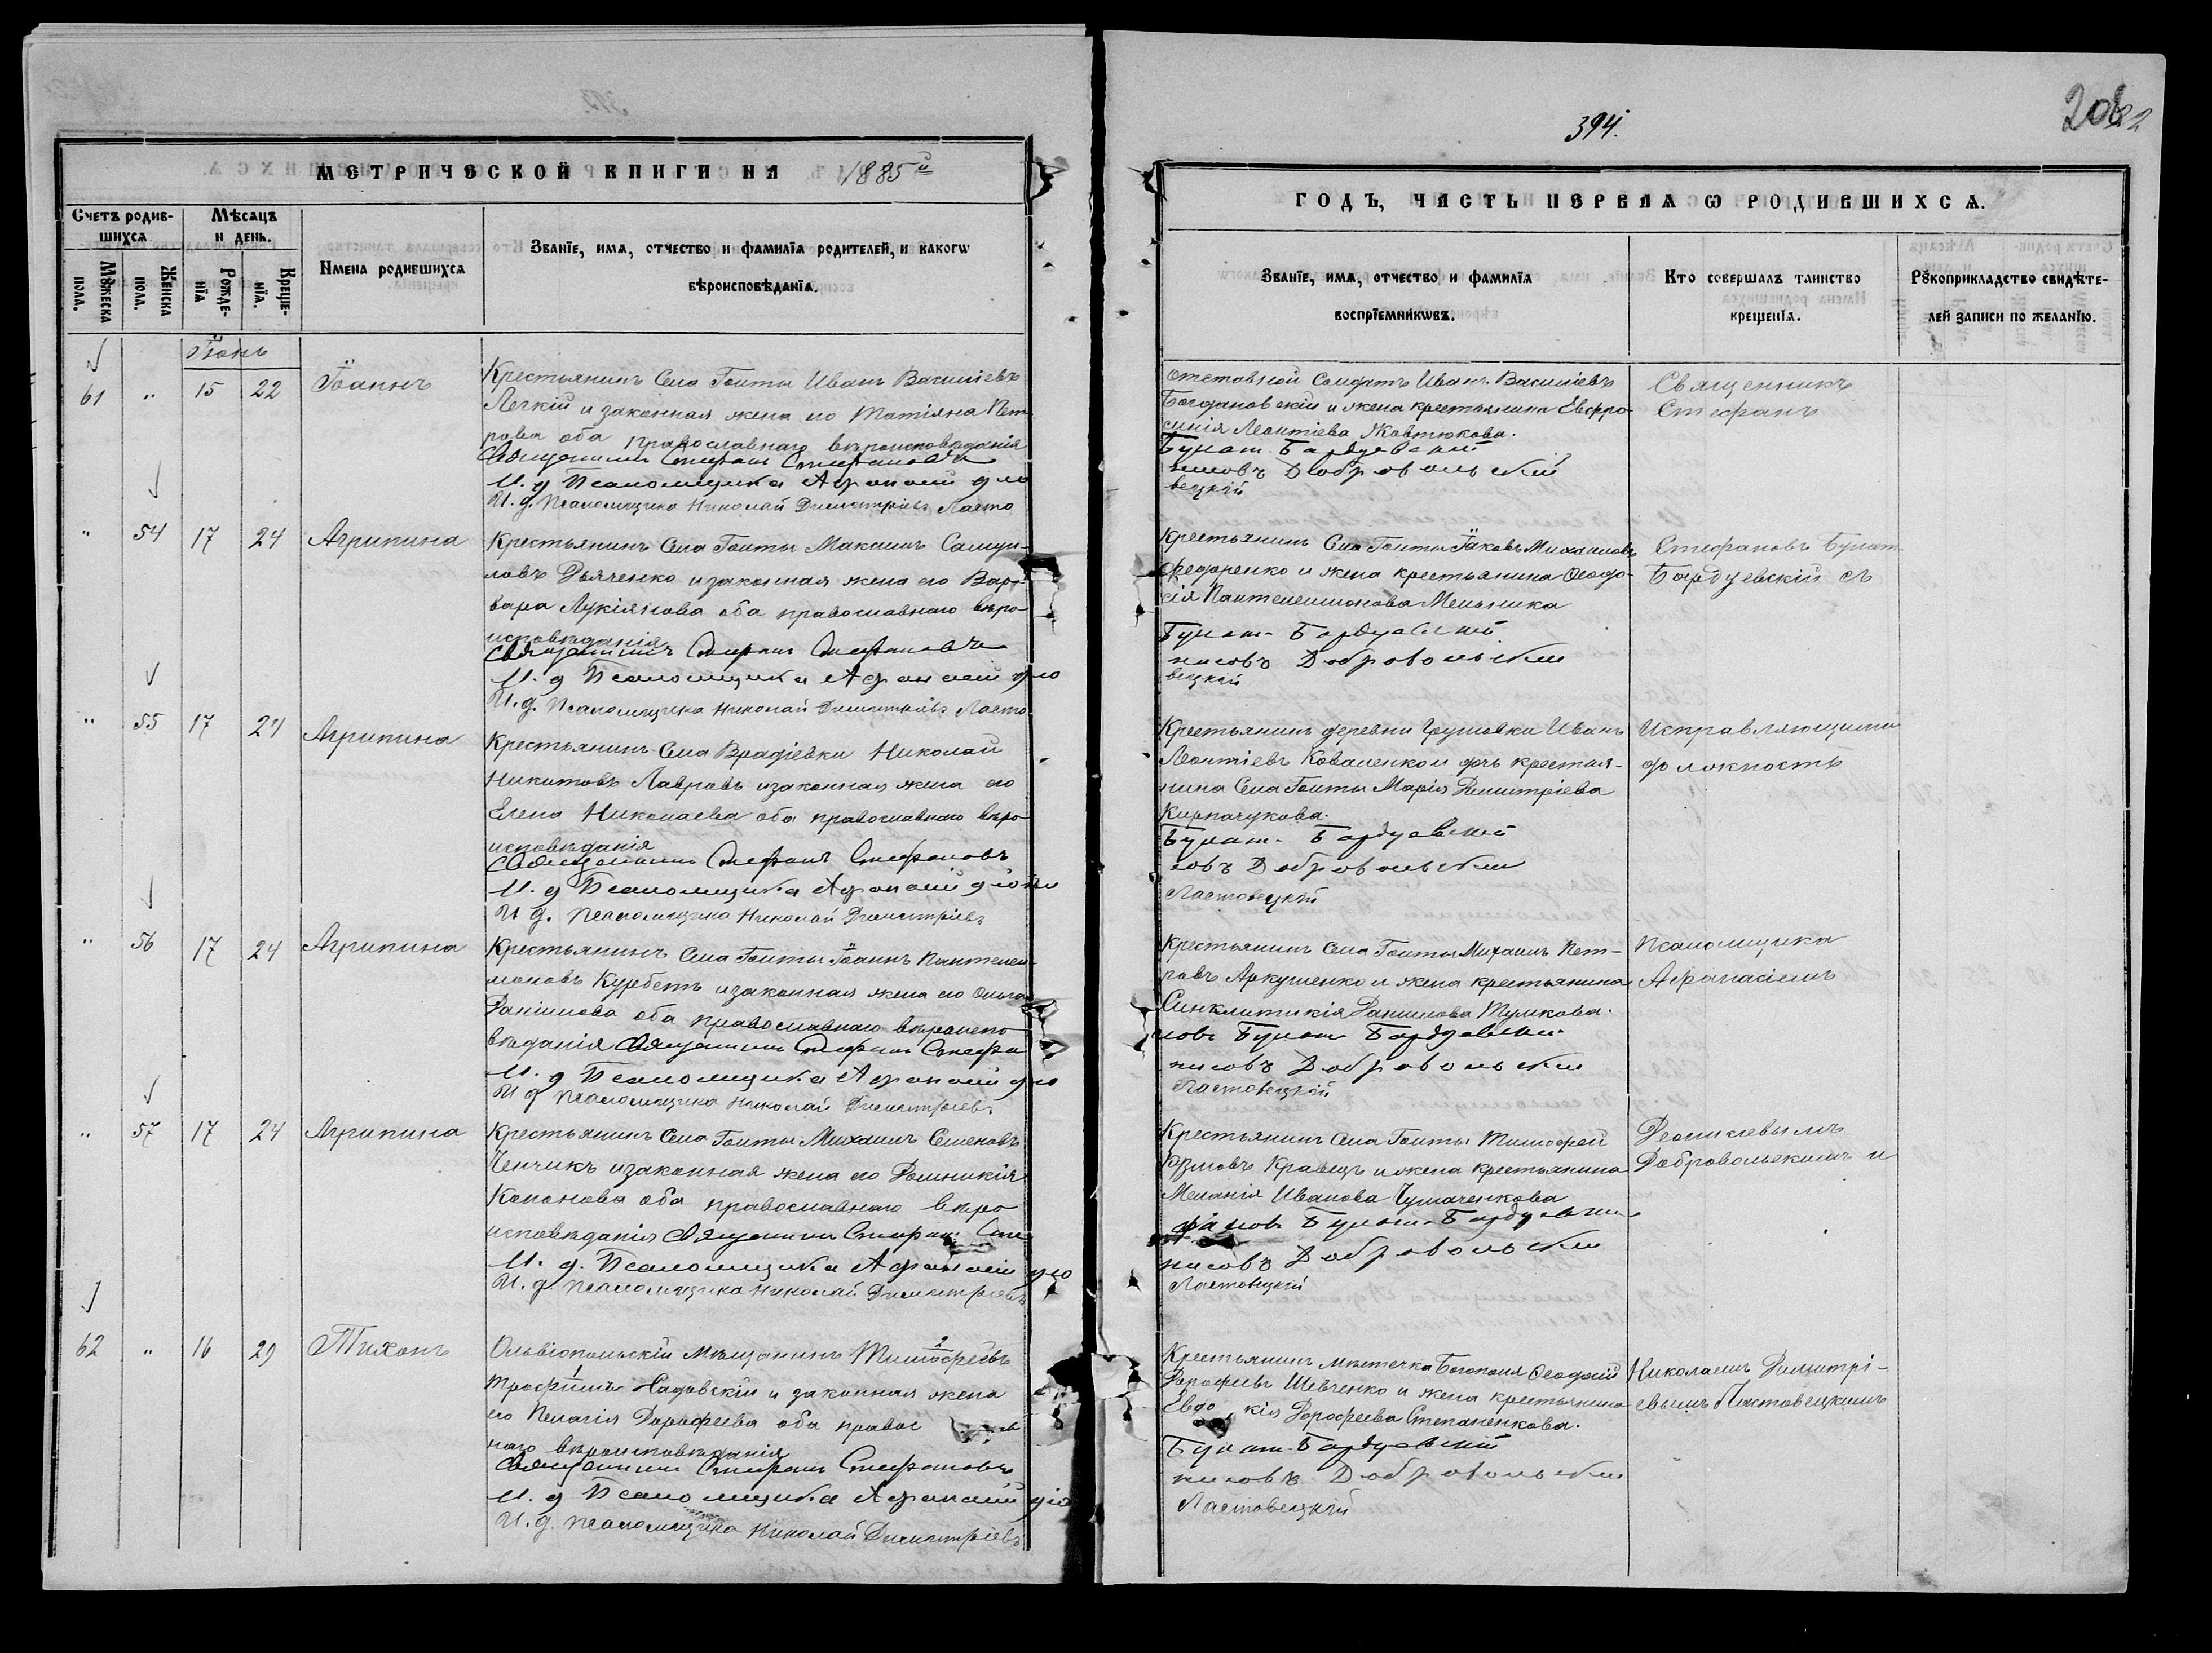 394.
208
МЕТРИЧЕСКОЙ КНИГИ НА 1885й
Счетъ родив-
шихся
Мѣсяцъ
и день.
Мꙋжеска
пола.
Женска
пола.
Рожде-
нїя
Креще-
нїя.
Имена родившихся
Званїе, имя, отчество и фамилїя родителей, и какогѡ
вѣроисповѣданїя.
Iюнь
61 " 15 22 Iоаннъ
Крестьянинъ Села Голты Иванъ Василiевъ
Легкiй и законная жена его Татiяна Пет
рова оба православнаго вѣроисповѣданiя
Священникъ Стефанъ Стефановъ
И. д Псаломщика Афанасий дио
И. д. Псаломщика Николай Димитрiевъ Ласто
" 54 17 24 Агрипина
Крестьянинъ Села Голты Максимъ Самуи-
ловъ Дьяченко и законная жена его Вар-
вара Лукiянова оба православнаго вѣро
исповѣданiя
Священникъ Стефанъ Стефановъ
И. д Псаломщика Афанасий дио
И. д. Псаломщика Николай Димитрiевъ Ласто
" 55 17 24 Агрипина
Крестьянинъ Села Врадiевки Николай
Никитовъ Лавровъ и законная жена его
Елена Николаева оба православнаго вѣро
исповѣданiя
Священникъ Стефанъ Стефановъ
И. д Псаломщика Афанасий диони
И д. Псаломщика Николай Димитрiевъ
" 56 17 24 Агрипина
Крестьянинъ Села Голты Iоаннъ Пантелей-
моновъ Курбетъ и законная жена его Ольга
Данiилова оба православнаго вѣроиспо
вѣданiя Священникъ Стефанъ Стефа
И. д Псаломщика Афанасий дио
И д Псаломщика Николай Димитрiевъ
" 57 17 24 Агрипина
Крестьянинъ Села Голты Михаилъ Семеновъ
Ченчикъ и законная жена его Домникiя
Кононова оба православнаго вѣро
исповѣданiя Священникъ Стефанъ Сте
И. д. Псаломщика Афанасий дио
И. д. Псаломщика Николай Димитрiевъ
62 " 16 29 Тихонъ
Ольвiопольскiй мѣщанинъ Тимофеевъ
Трофимъ Садовскiй и законная жена
его Пелагiя Дорофеева оба правос
наго вѣроисповѣданiя
Священникъ Стефанъ Стефановъ
И. д Псаломщика Афанасий дио
И. д. Псаломщика Николай Димитрiевъ
ГОДЪ, ЧАСТЬ ПЕРВАЯ Ѡ РОДИВШИХСЯ.
Званїе, имя, отчество и фамилїя
воспрїемникѡвъ.
Кто совершалъ таинство
крещенїя.
Рꙋкоприкладство свидѣте-
лей записи по желанїю.
отставной Солдатъ Иванъ Василiевъ
Богдановскiй и жена крестьянина Евфро-
синiя Леонтiева Жовтюкова.
Булат-Бардуевский
нисовъ Добровольский
вецкiй
Крестьянинъ Села Голты Iаковъ Михаиловъ
Федоренко и жена крестьянина Феодо-
сiя Пантелеимонова Мельника
Булат-Бардуевский
нисовъ Добровольский
вецкiй
Крестьянинъ деревни Грушовки Иванъ
Леонтiевъ Коваленко и дочь крестья-
нина Села Голты Марiя Димитрiева
Кирпачукова.
Булат-Бардуевский
совъ Добровольский
Ластовецкiй
Крестьянинъ Села Голты Михаилъ Пет-
ровъ Аркушенко и жена крестьянина
Синклитикiя Данилова Тумкова.
новъ Булат Бардуевский
нисовъ Добровольский
Ластовецкiй
Крестьянинъ Села Голты Тимофей
Кравецъ и жена крестьянина
Меланiя Иванова Чумаченкова
фановъ Булат-Бардуевский
нисовъ Добровольский
Ластовецкiй
Крестьянинъ мѣстечка Богополя Феодосiй
Дорофеевъ Шевченко и жена крестьянина
Евдо кiя Дорофеева Степаненкова.
Булат-Бардуевский
нисовъ Добровольский
Ластовецкiй
Священникъ
Стефанъ
Стефановъ Булат-
Бардуевскiй съ
Исправляющими
должность
Псаломщика
Афанасiемъ
Дiонисiевымъ
Добровольскимъ и
Николаемъ Димитрi-
евымъ Ластовецкимъ